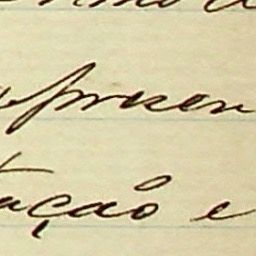 apresen
tação e